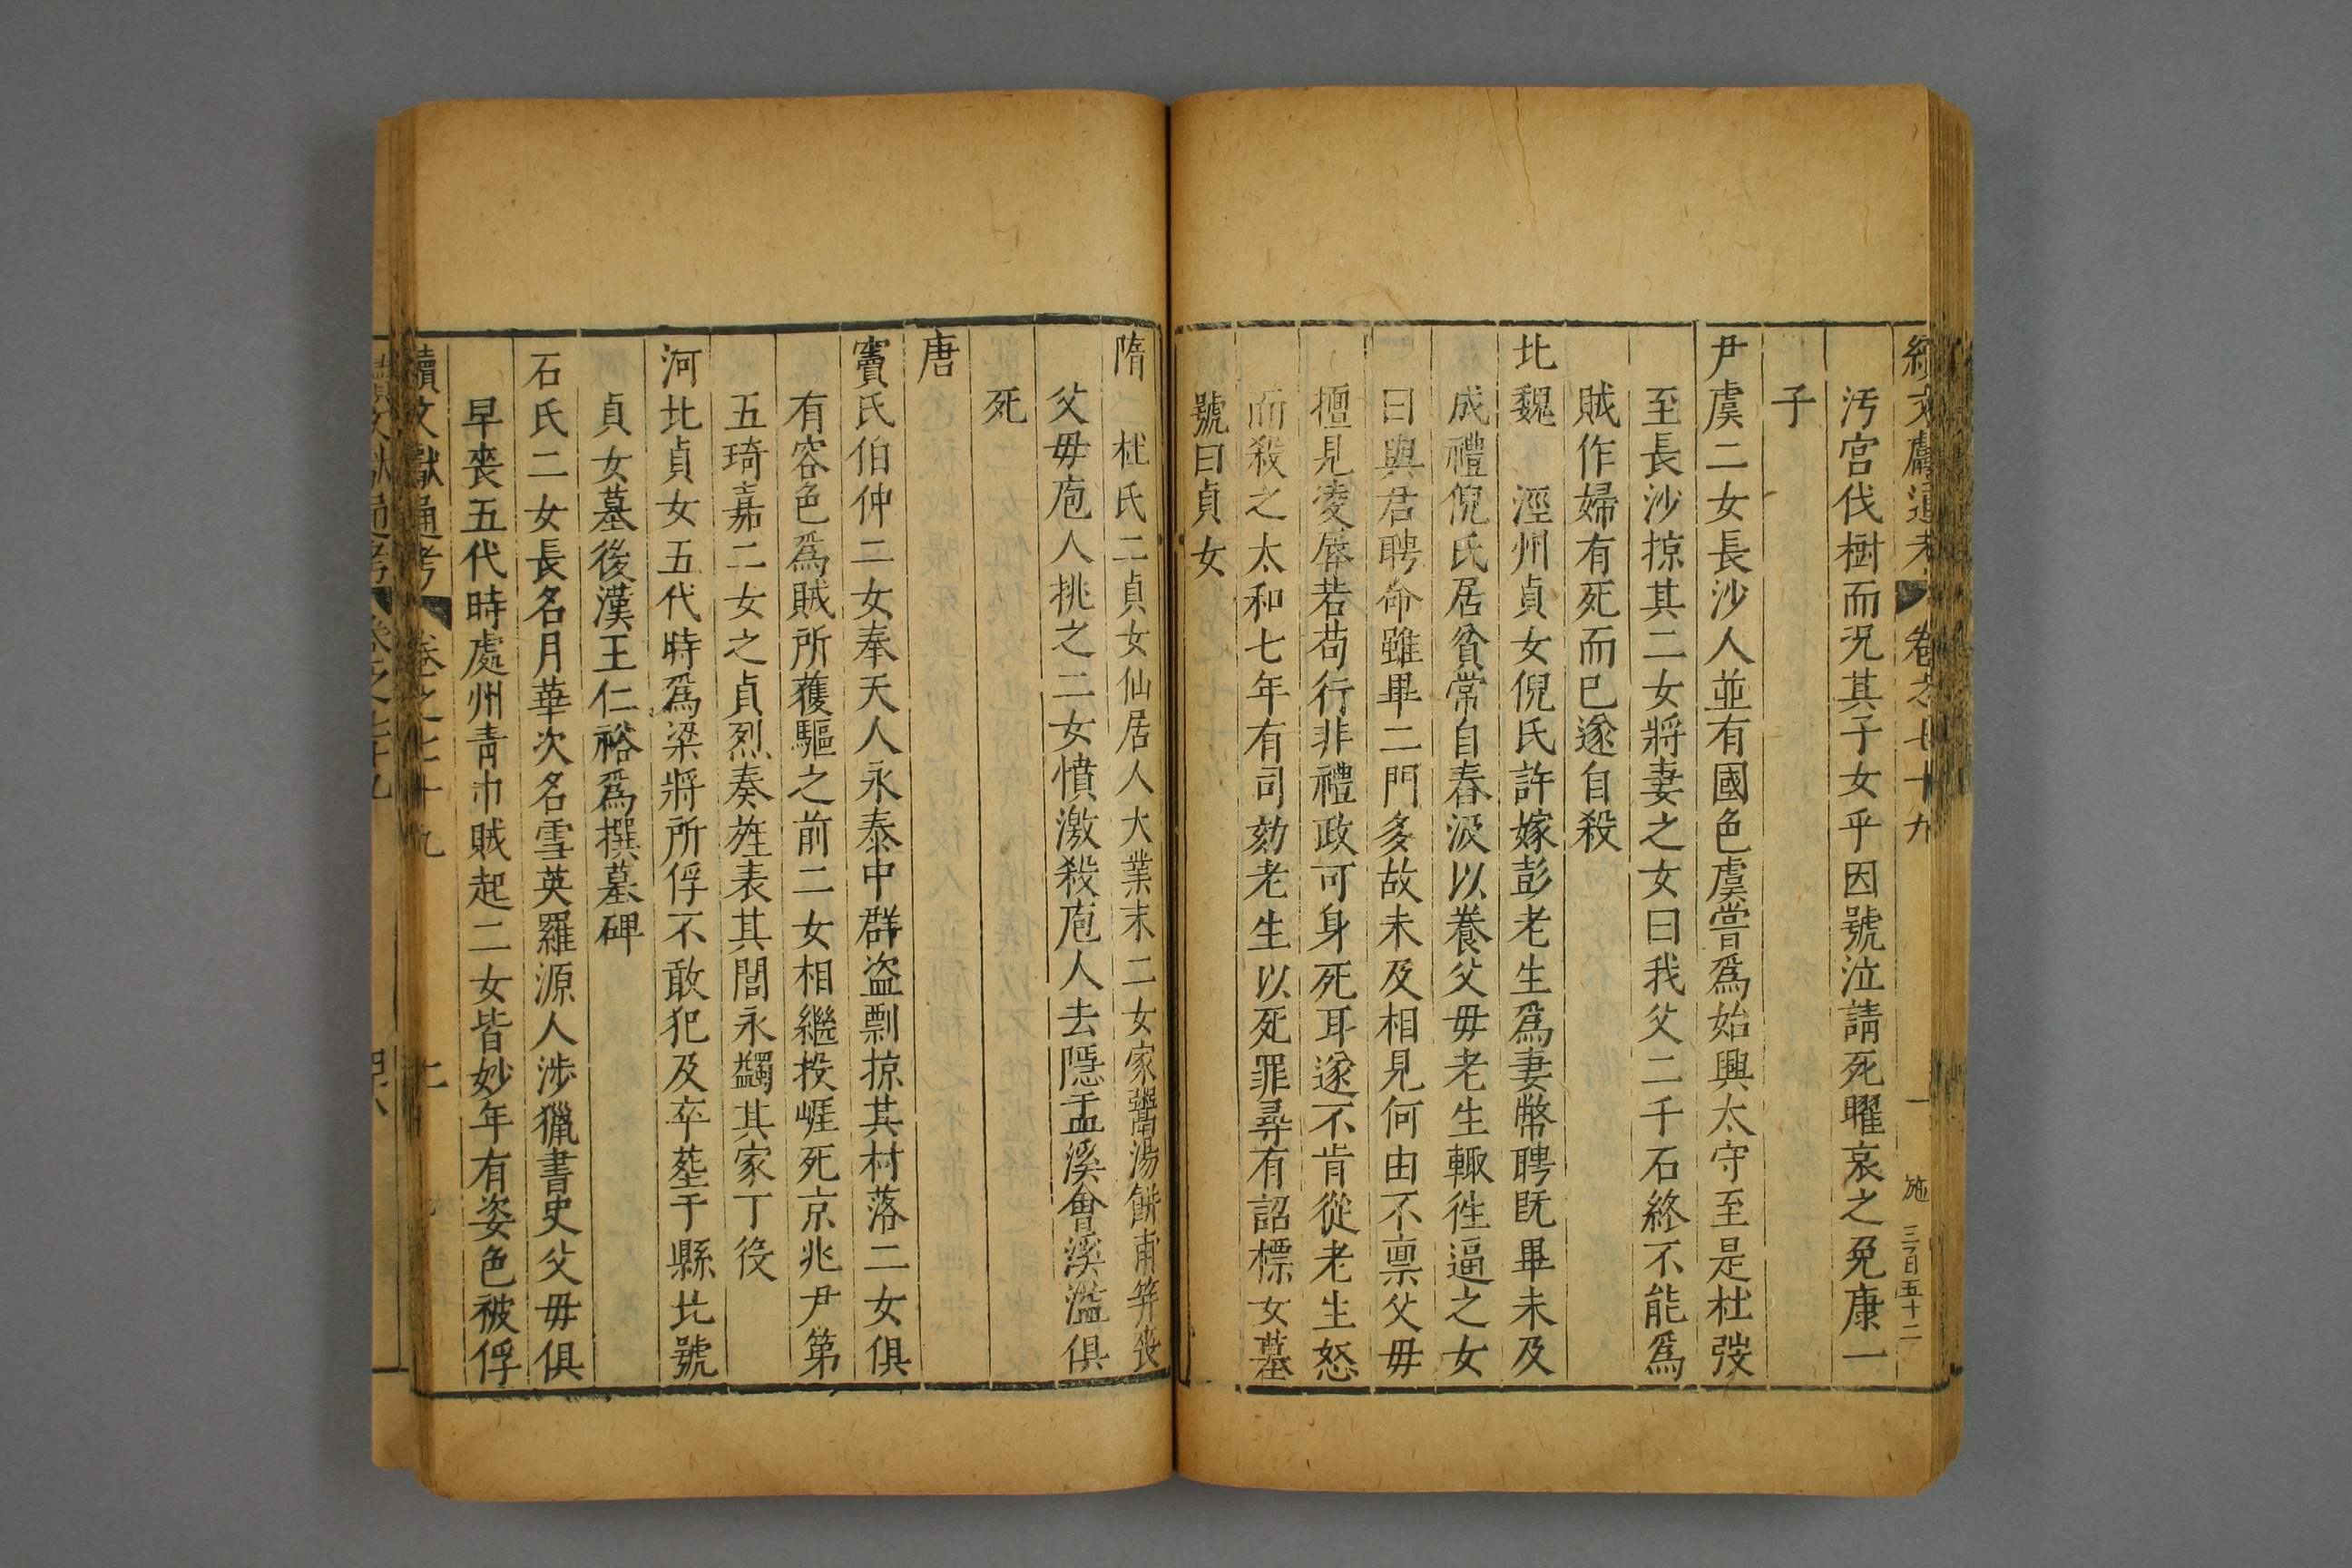 續文獻通考 卷之七十九 一 施 三百五十二
汚宫伐樹而況其子女乎因號泣請死曜哀之免康一
子
尹虞二女長沙人並有國色虞嘗爲始興太守至是杜弢
至長沙掠其二女將妻之女曰我父二千石終不能爲
賊作婦有死而已遂自殺
北魏 涇州貞女倪氏許嫁彭老生爲妻幣聘既畢未及
成禮倪氏居貧常自舂汲以養父毋老生輙徃逼之女
曰與君聘命雖畢二門多故未及相見何由不禀父毋
擅見凌辱若苟行非禮政可身死耳遂不肯從老生怒
而殺之太和七年有司劾老生以死罪尋有詔標女墓
號曰貞女
隋 杜氏二貞女仙居人大業末二女家鬻湯餅甫笄喪
父毋庖人挑之二女憤激殺庖人去隱孟溪會溪濫俱
死
唐
竇氏伯仲二女奉天人永泰中群盗剽掠其村落二女俱
有容色爲賊所獲驅之前二女相繼投崕死京兆尹第
五琦嘉二女之貞烈奏旌表其閭永蠲其家丁役
河北貞女五代時爲梁將所俘不敢犯及卒塟于縣北號
貞女墓後漢王仁裕爲撰墓碑
石氏二女長名月華次名雪英羅源人涉獵書史父毋俱
早喪五代時處州青巾賊起二女皆妙年有姿色被俘
續文獻通考 卷之七十九 二
續文獻通考 卷之七十九